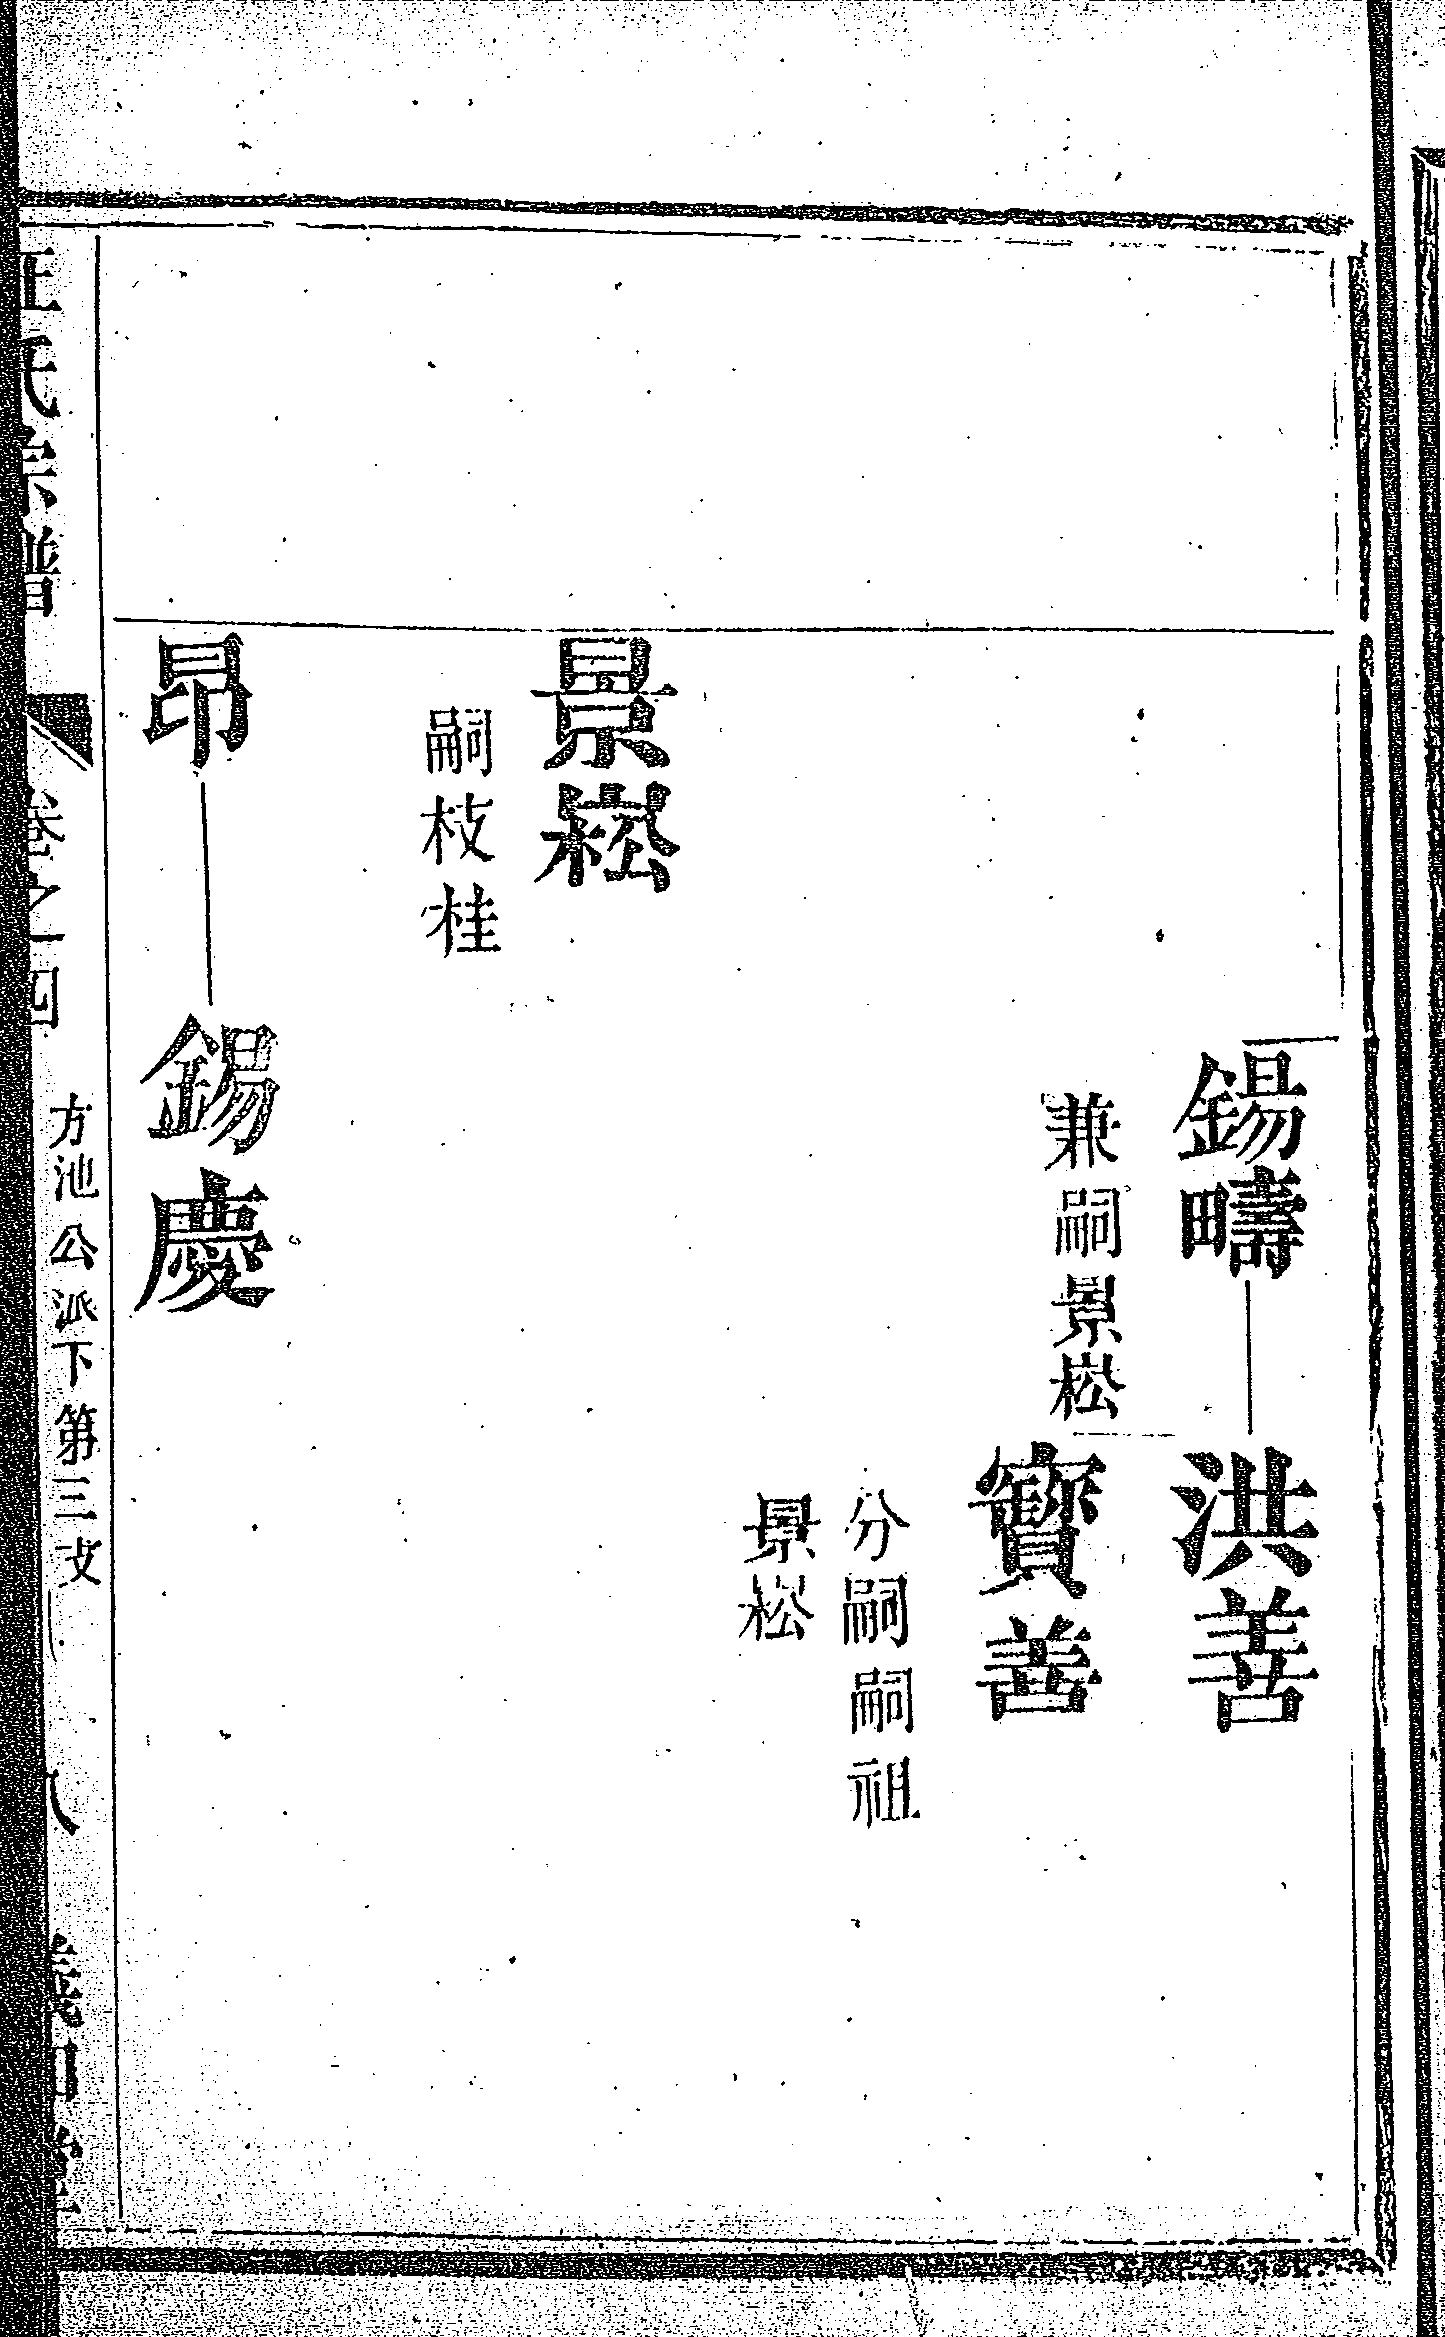 錫疇
洪善
兼嗣景崧
寶善
分嗣嗣祖
景崧
景崧
嗣枝桂
昂
錫慶
王氏宗譜
卷之四
方池公派下第三支
八